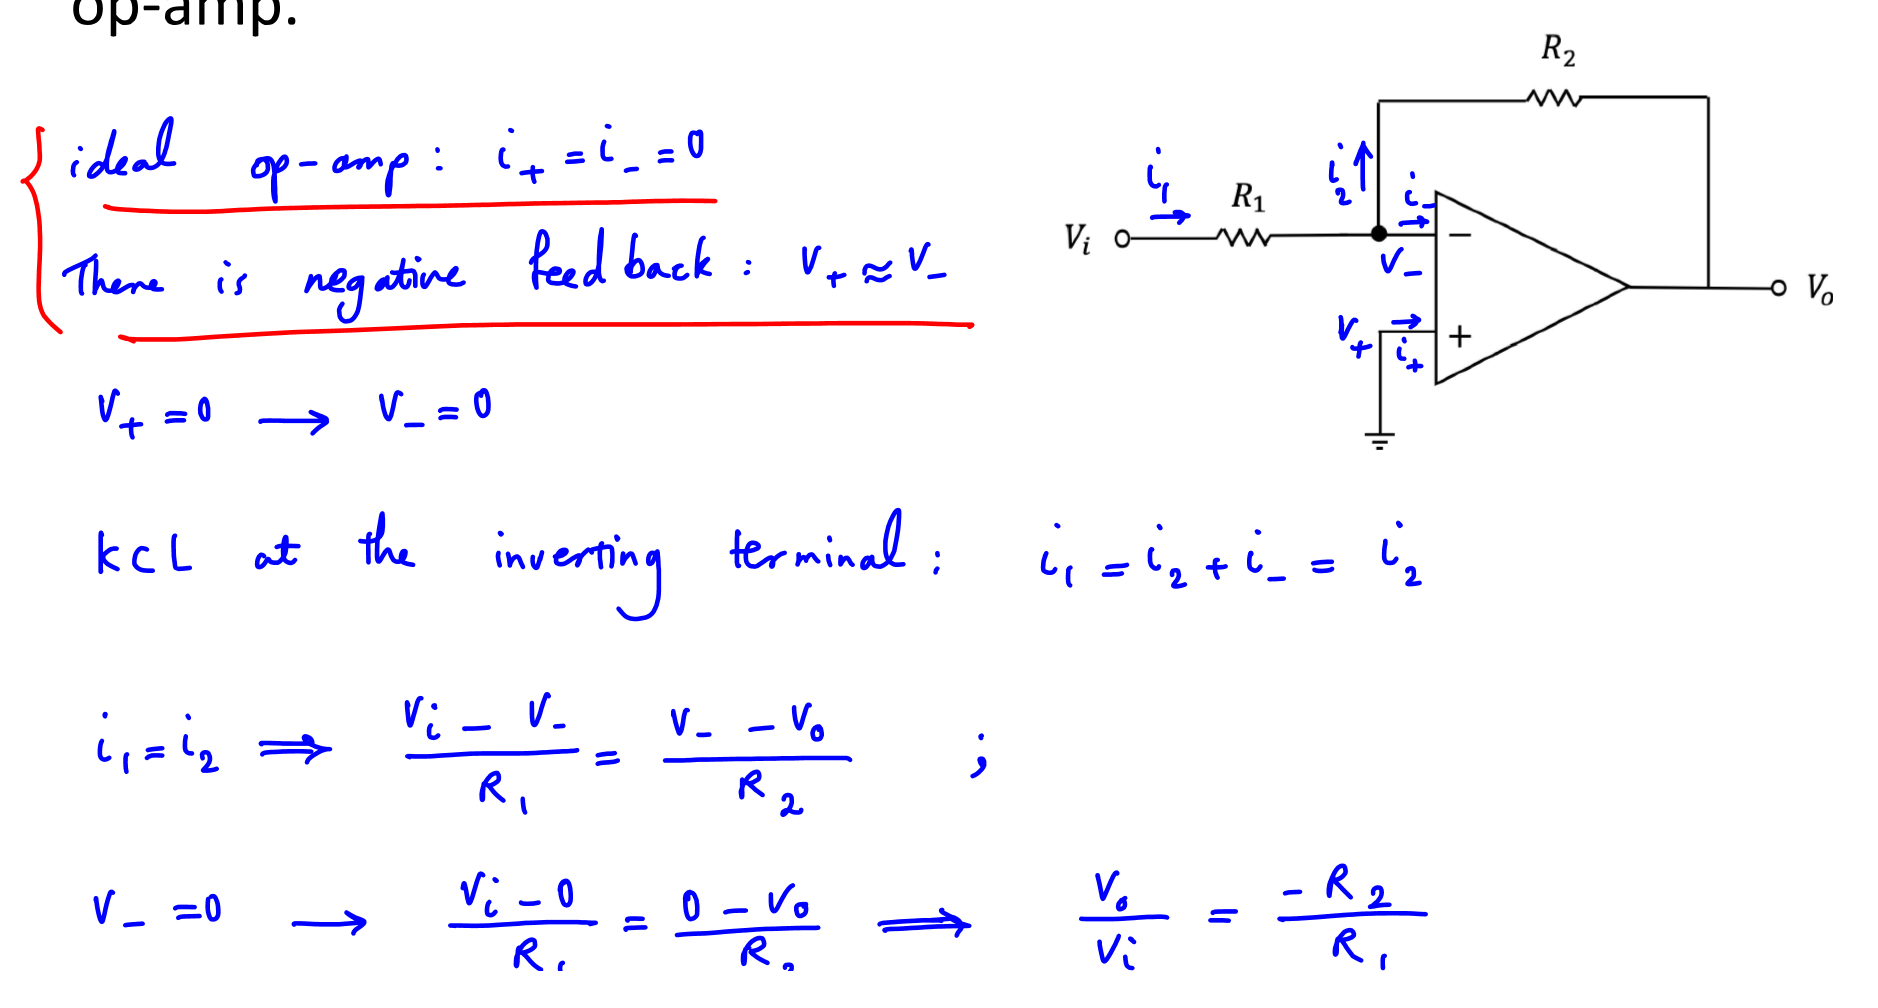 op-amp.
ideal op-amp: i₊ = i₋ = 0
There is negative feedback: V₊ ≈ V₋
V₊ = 0 ⟶ V₋ = 0
R₂
i₁
i₂
i₋
R₁
Vᵢ
−
V₋
V₊
i₊
+
Vₒ
KCL at the inverting terminal: i₁ = i₂ + i₋ = i₂
i₁ = i₂ ⟹ (Vᵢ − V₋)/R₁ = (V₋ − Vₒ)/R₂ ;
V₋ = 0 ⟶ (Vᵢ − 0)/R₁ = (0 − Vₒ)/R₂ ⟹ Vₒ/Vᵢ = −R₂/R₁